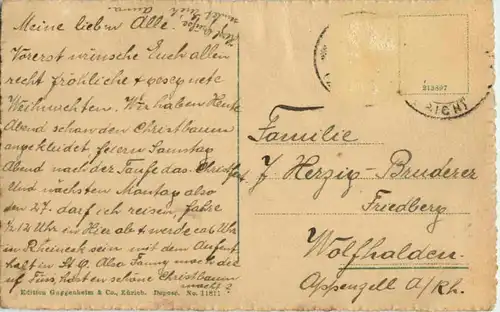 Meine lieben Alle.
Herzl. Grüsse,
sendet Euch
Anna.
Vorerst wünsche Euch allen
recht fröhliche + gesegnete
Weihnachten. Wir haben Heute
Abend schon den Christbaum
angekleidet feiern Samstag
Abend nach der Taufe das Christfest
Und nächsten Montag also
den 27. darf ich reisen, fahre
½ 12 Uhr in Hier ab + werde ca Uhr
in Rheineck sein mit dem Aufent
halt in St. G. Also Fanny mach dei
Füss, hast en schöne Christbaum
macht?
Edition Guggenheim & Co., Zürich. Depose. No. 11811
213497
RICHT
Familie
J. Herzig-Bruderer
Friedberg
Wolfhalden.
Appenzell A/Rh.